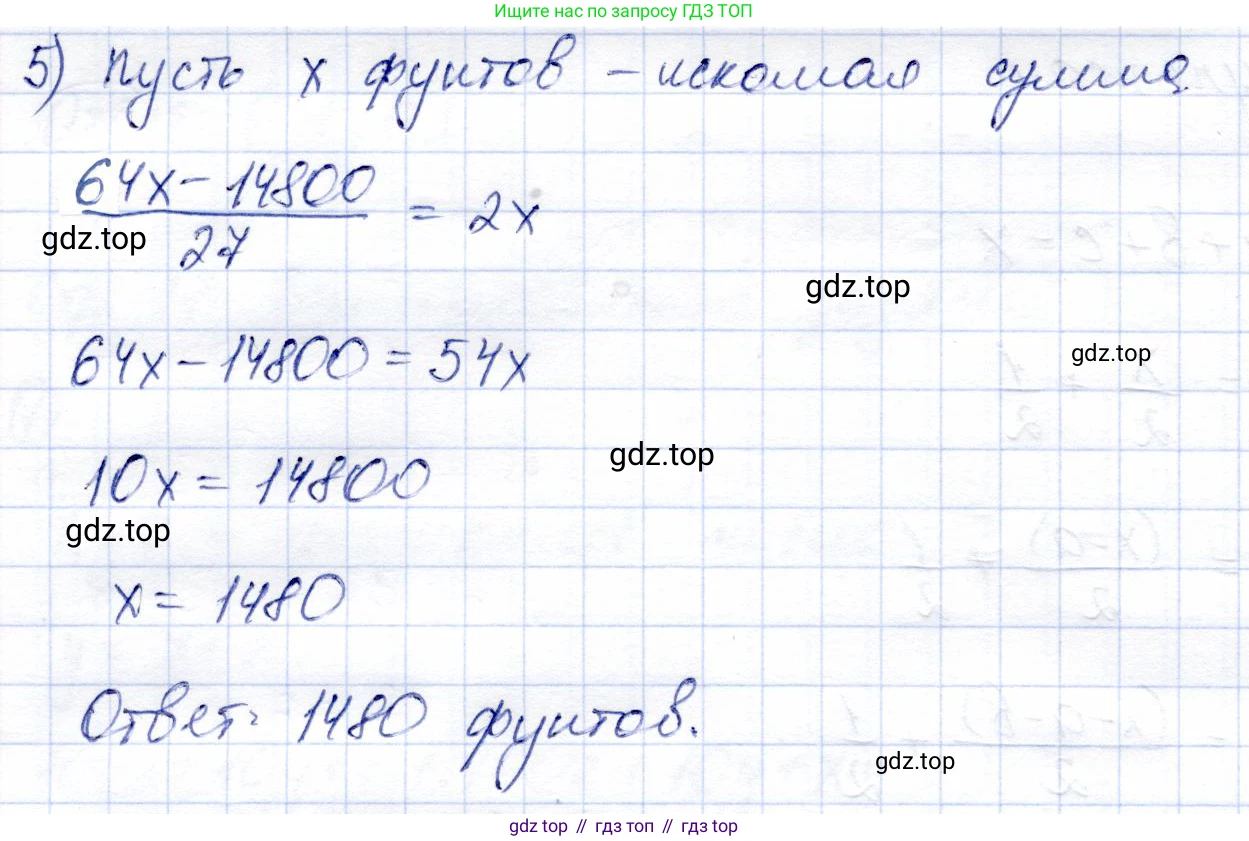 Ищите нас по запросу ГДЗ ТОП
5) Пусть x фунтов – искомая сумма
64x – 14800
27
= 2x
gdz.top
gdz.top
64x – 14800 = 54x
gdz.top
gdz.top
10x = 14800
gdz.top
x = 1480
Ответ: 1480 фунтов.
gdz.top
gdz top // гдз топ // gdz top